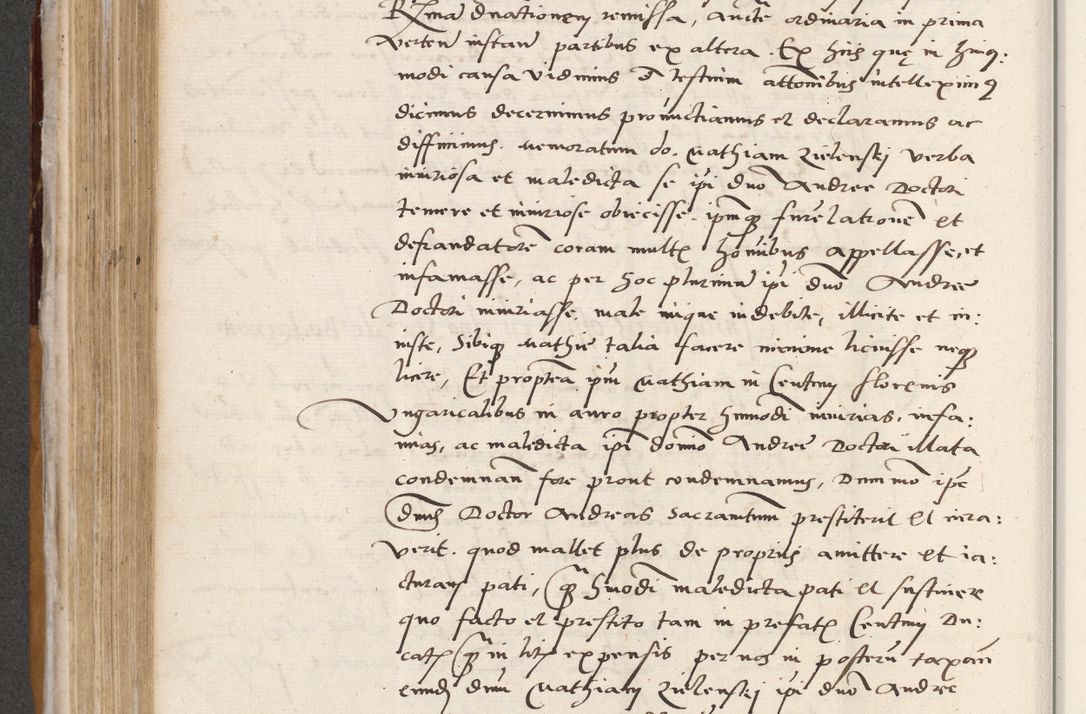 R͞zma duationem remissa, aucte ordinaria in prima
verten instan partibus ex altera. Ex hiis quę in huius:
modi causa vidimus et testium attonibus intelleximus
dicimus decernimus pronuctiamus et declaramus ac
diffinimus. memoratum do. Mathiam Zielenski verba
iniuriosa et maledicta se ipi duo Andree Doctori
temere et iniuriose obiecisse. ipmq fure latrone et
defraudatore coram mult hoibus appellasse, et
infamasse, ac per hoc plurimu ipi duo Andree
Doctori iniuriasse. male inique indebite, illicite et in:
iuste, Sibiq Mathie talia facere minime licuisse neq
licere, Et propterea ipm Mathiam in Centum florenis
Vngaricalibus in auro propter humodi iniurias, infa:
mias, ac maledicta ipi domno Andree Doctori illata
condemnan fore prout condemnamus, Dummo ipe
dnus Doctor Andreas Sacramtum prestiterit et iura:
verit. quod mallet plus de propriis amittere et ia:
cturam pati, q humodi maledicta pati et sustinere
quo facto et prestito tam in prefat Centum Du:
cat q in lit expensis per nos in posteru taxan
eund dnum Mathiam Zielenski ipi duo Andree